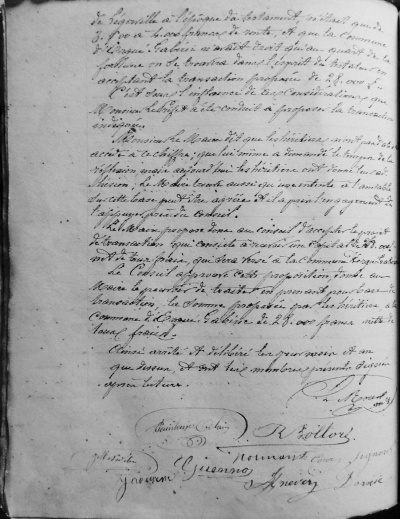 de Lézonville à l'époque du testament, n'était que de
3.800 à 4.000 francs de rente, et que la commune
d'Ergué-Gabéric n'avait droit qu'au quart de la
fortune on se trouve dans l'esprit du testateur en
acceptant la transaction proposée de 28.000 f.
C'est sous l'influence de ces considérations que
Monsieur le Préfet a été conduit à proposer la transaction
indiquée.
Monsieur le Maire dit que les héritiers n'ont pas
accédé à ce chiffre, que lui même a demandé le temps de la
réflexion mais aujourd'hui les héritiers ont donné leur adhésion
; le Maire croit aussi qu'une entente à l'amiable
sur cette base peut être agréée et il a pris l'engagement de
l'appuyer près du conseil.
Le Maire propose donc au conseil d'accepter le projet
de transaction qui consiste à recevoir un capital de 28.000
net de tous frais, qui sera versé à la commune
Le Conseil approuve cette proposition donne au
Maire le pouvoir de traiter en prenant pour base de
transaction, la somme proposée par les héritiers à la
commune d'Ergué-Gabéric de 28.000 francs nette de
tous frais.
Ainsi arrêté et délibéré les jour mois et an
que dessus et ont les membres présents signé
après lecture.
Le Maire
R Bolloré
Guenno